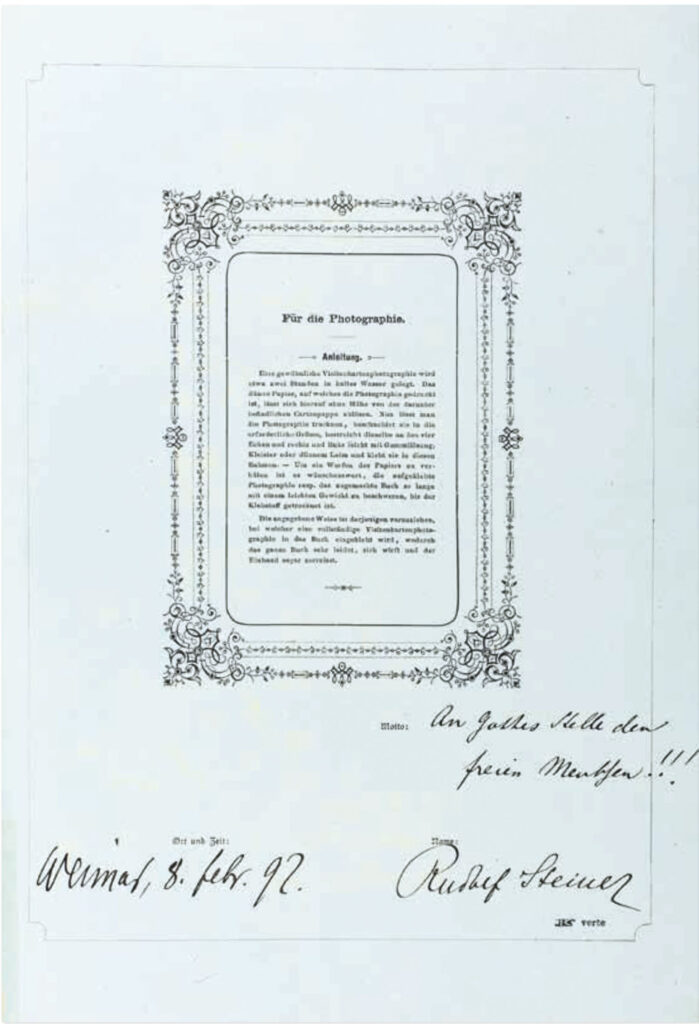 Für die Photographie.
Anleitung.
Eine gewöhnliche Visitenkartenphotographie wird
etwa zwei Stunden in kaltes Wasser gelegt. Das
dünne Papier, auf welches die Photographie gedruckt
ist, lässt sich hierauf ohne Mühe von der darunter
befindlichen Cartonpappe ablösen. Nun lässt man
die Photographie trocknen, beschneidet sie in die
erforderliche Grösse, bestreicht dieselbe an den vier
Ecken und rechts und links leicht mit Gummilösung,
Kleister oder dünnem Leim und klebt sie in diesen
Rahmen. — Um ein Werfen des Papiers zu ver-
hüten ist es wünschenswert, die aufgeklebte
Photographie resp. das zugemachte Buch so lange
mit einem leichten Gewicht zu beschweren, bis der
Klebstoff getrocknet ist.
Die angegebene Weise ist derjenigen vorzuziehen,
bei welcher eine vollständige Visitenkartenphoto-
graphie in das Buch eingeklebt wird, wodurch
das ganze Buch sehr leidet, sich wirft und der
Einband sogar zerreisst.
Motto: An Gottes Stelle den
freien Menschen!!!
1 Ort und Zeit:
Weimar, 8. febr. 92.
Name:
Rudolf Steiner
verte